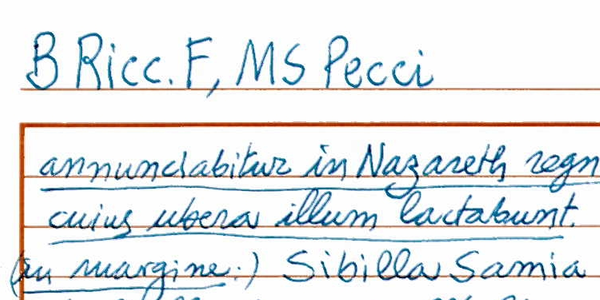 B Ricc. F, MS Pecci
annunciabitur in Nazareth regn
cuius ubera illum lactabunt.
(in margine:) Sibilla Samia